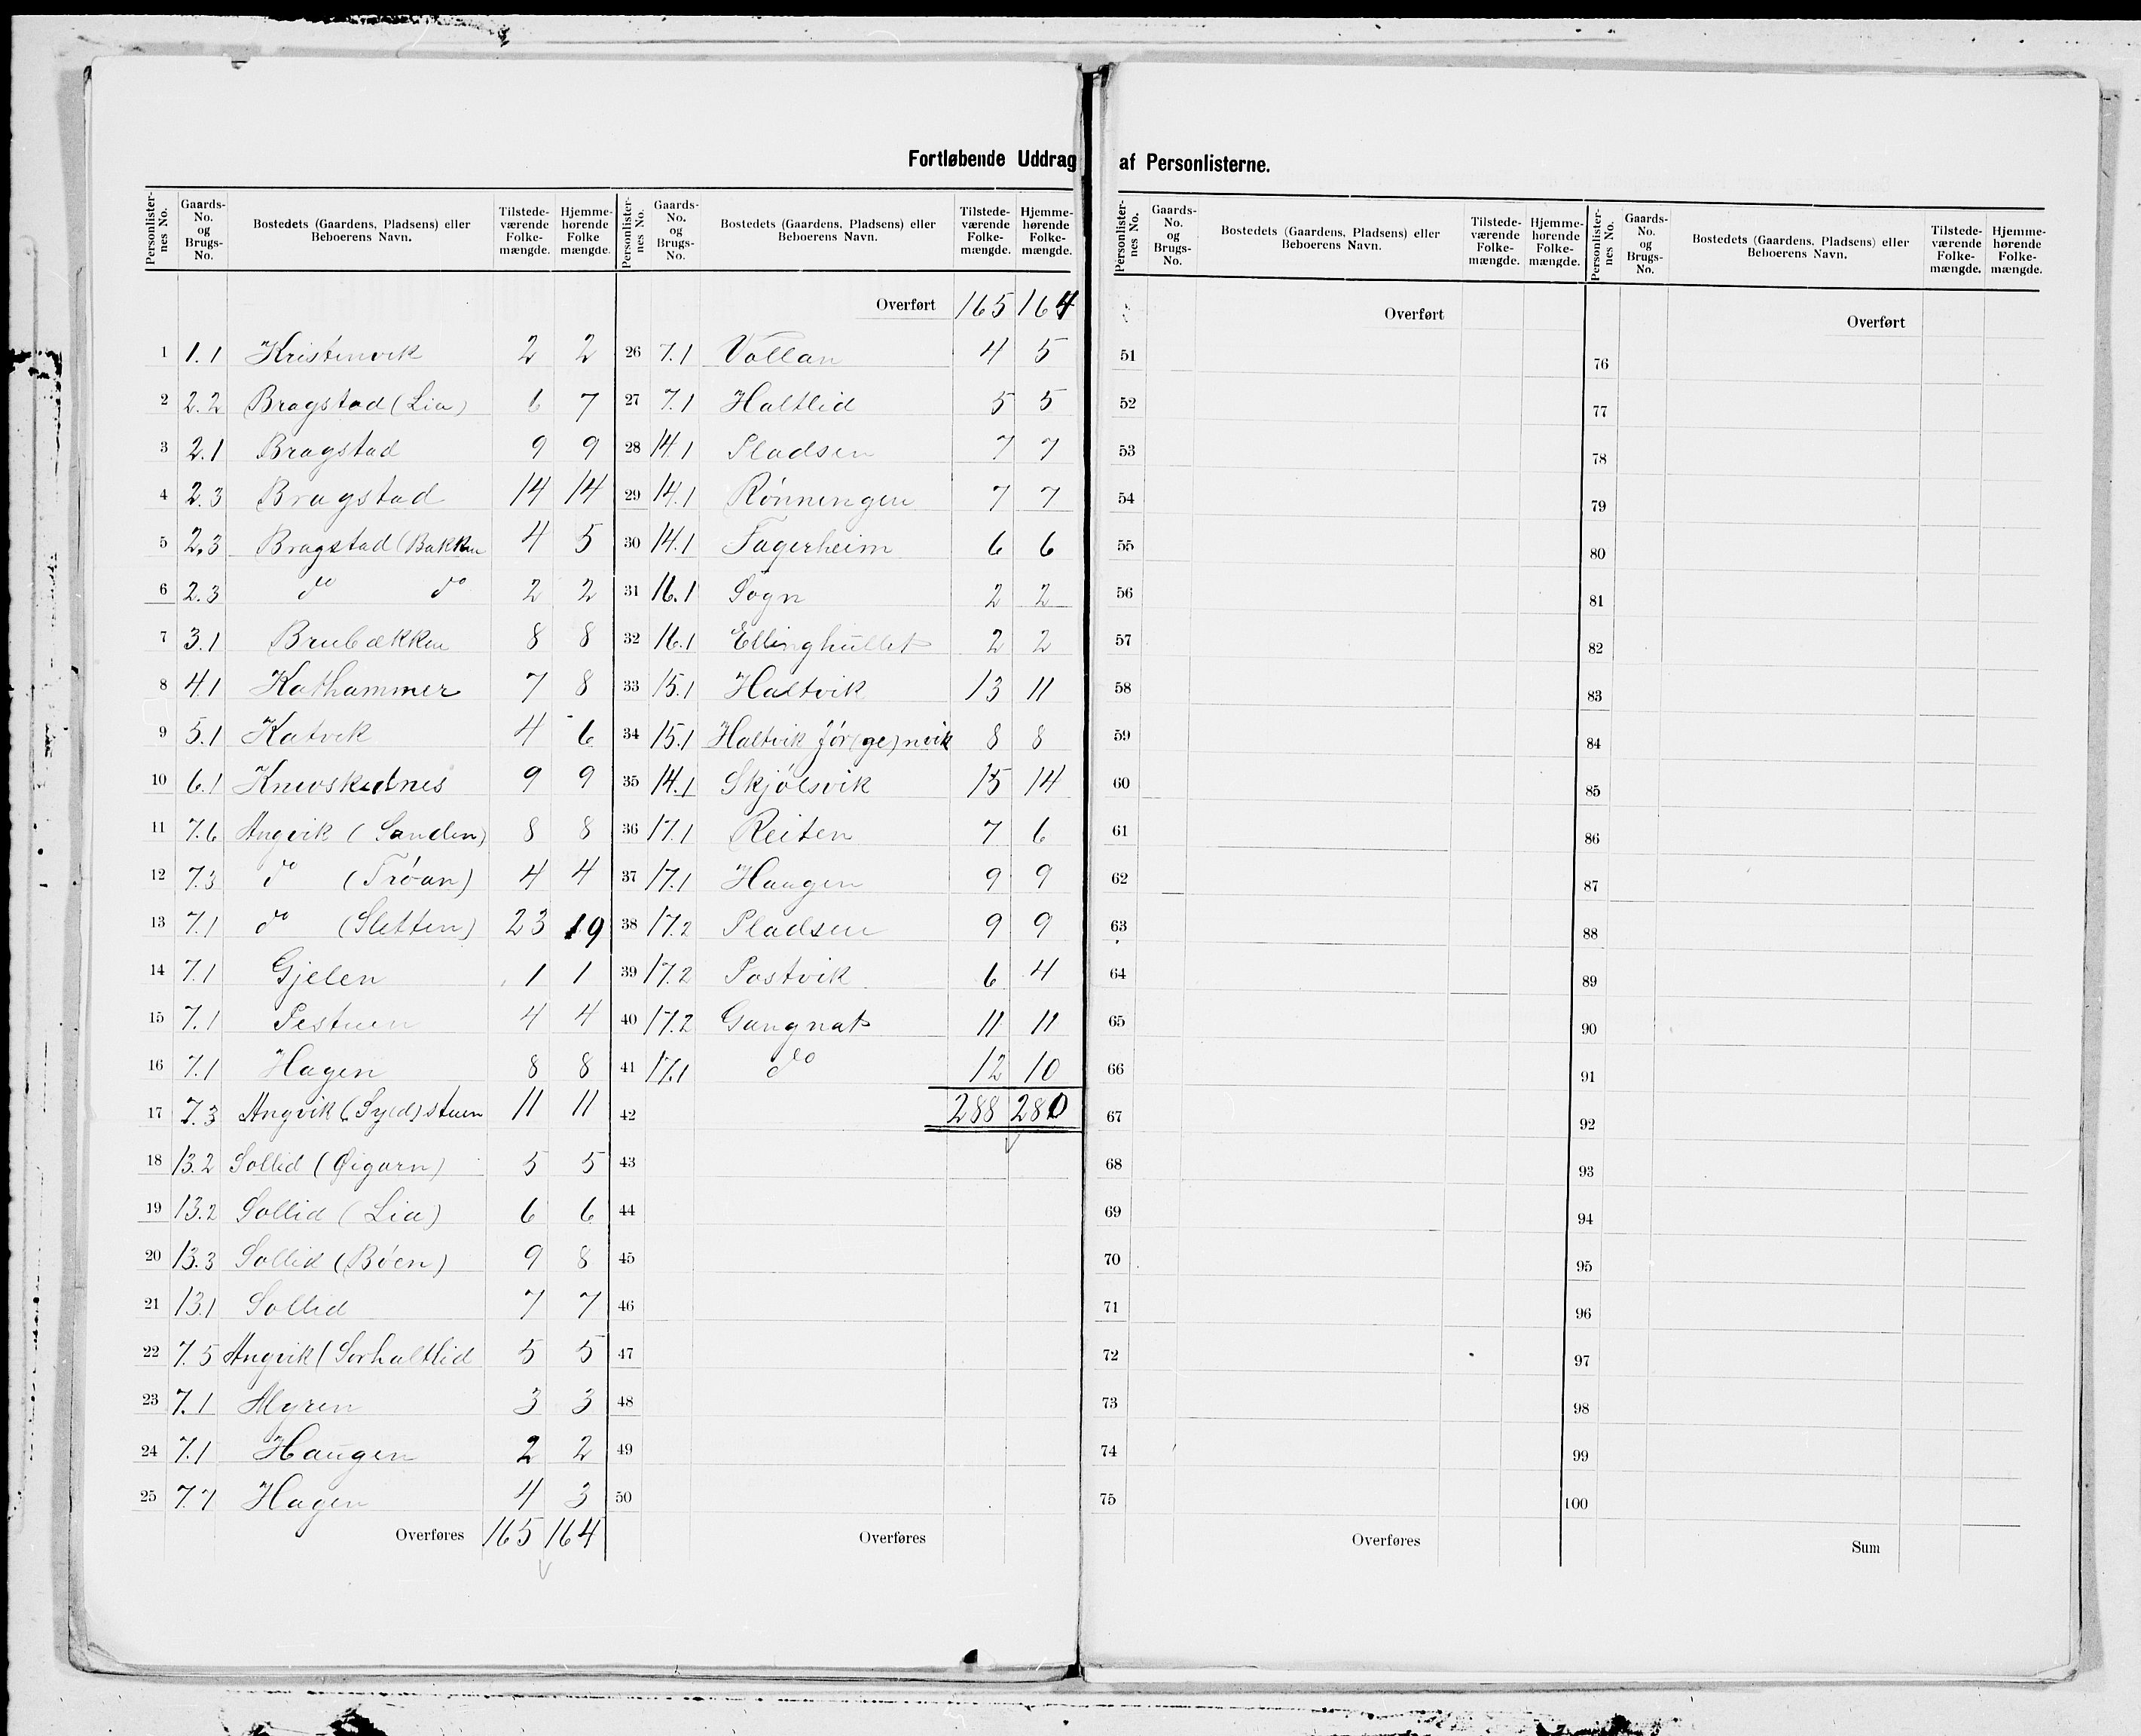 Fortløbende Uddrag af Personlisterne.
Personlisternes No. Gaards-No. og Brugs-No. Bostedets (Gaardens, Pladsens) eller Beboerens Navn. Tilstedeværende Folkemængde. Hjemmehørende Folkemængde.
1 1.1 Kristenvik 2 2
2 2.2 Bragstad (Lia) 6 7
3 2.1 Bragstad 9 9
4 2.3 Bragstad 14 14
5 2.3 Bragstad (Bakken 4 5
6 2.3 do do 2 2
7 3.1 Brubækken 8 8
8 4.1 Kathammer 7 8
9 5.1 Katvik 4 6
10 6.1 9 9
11 7.6 Angvik (Sanden) 8 8
12 7.3 do (Trøan) 4 4
13 7.1 do (Sletten) 23 19
14 7.1 Gjelen 1 1
15 7.1 Pestuen 4 4
16 7.1 Hagen 8 8
17 7.3 Angvik (Sy(d)stuen 11 11
18 13.2 Sollid (Øigarn) 5 5
19 13.2 Sollid (Lia) 6 6
20 13.3 Sollid (Bøen) 9 8
21 13.1 Sollid 7 7
22 7.5 Angvik (Sørhaltlid 5 5
23 7.1 Myren 3 3
24 7.1 Haugen 2 2
25 7.7 Hagen 4 3
Overføres 165 164
Personlisternes No. Gaards-No. og Brugs-No. Bostedets (Gaardens, Pladsens) eller Beboerens Navn. Tilstedeværende Folkemængde. Hjemmehørende Folkemængde.
Overført 165 164
26 7.1 Vollan 4 5
27 7.1 Haltlid 5 5
28 14.1 Pladsen 7 7
29 14.1 Rønningen 7 7
30 14.1 Fagerheim 6 6
31 16.1 Sogn 2 2
32 16.1 Ellinghullet 2 2
33 15.1 Haltvik 13 11
34 15.1 Haltvik Jør(ge)nvik 8 8
35 14.1 Skjølsvik 15 14
36 17.1 Reiten 7 6
37 17.1 Haugen 9 9
38 17.2 Pladsen 9 9
39 17.2 Postvik 6 4
40 17.2 Gangnat 11 11
41 17.1 do 12 10
42 288 280
43
44
45
46
47
48
49
50
Overføres
Personlisternes No. Gaards-No. og Brugs-No. Bostedets (Gaardens, Pladsens) eller Beboerens Navn. Tilstedeværende Folkemængde. Hjemmehørende Folkemængde.
Overført
51
52
53
54
55
56
57
58
59
60
61
62
63
64
65
66
67
68
69
70
71
72
73
74
75
Overføres
Personlisternes No. Gaards-No. og Brugs-No. Bostedets (Gaardens, Pladsens) eller Beboerens Navn. Tilstedeværende Folkemængde. Hjemmehørende Folkemængde.
Overført
76
77
78
79
80
81
82
83
84
85
86
87
88
89
90
91
92
93
94
95
96
97
98
99
100
Sum